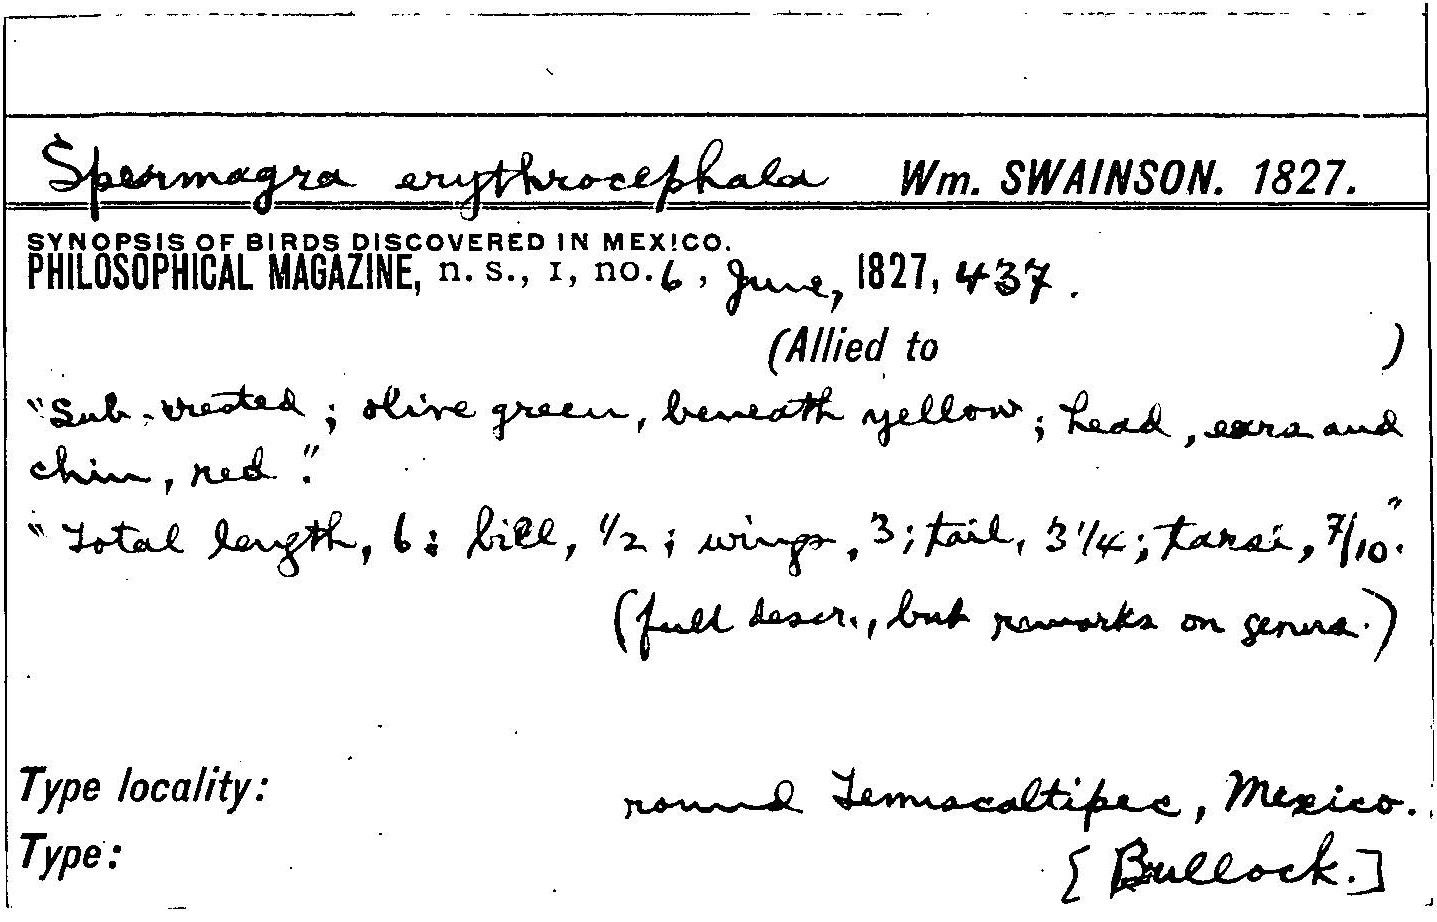 Spermagra erythrocephala Wm. SWAINSON. 1827.
SYNOPSIS OF BIRDS DISCOVERED IN MEXICO.
PHILOSOPHICAL MAGAZINE, n. s., I, no. 6, June, 1827, 437.
(Allied to )
"Sub-crested; olive green, beneath yellow; head, ears and
chin, red."
"Total length, 6; bill, 1/2; wings, 3; tail, 3 1/4; tarsi, 7/10."
(full descr., but remarks on genus.)
Type locality: round Temiscaltipec, Mexico.
Type: [Bullock.]